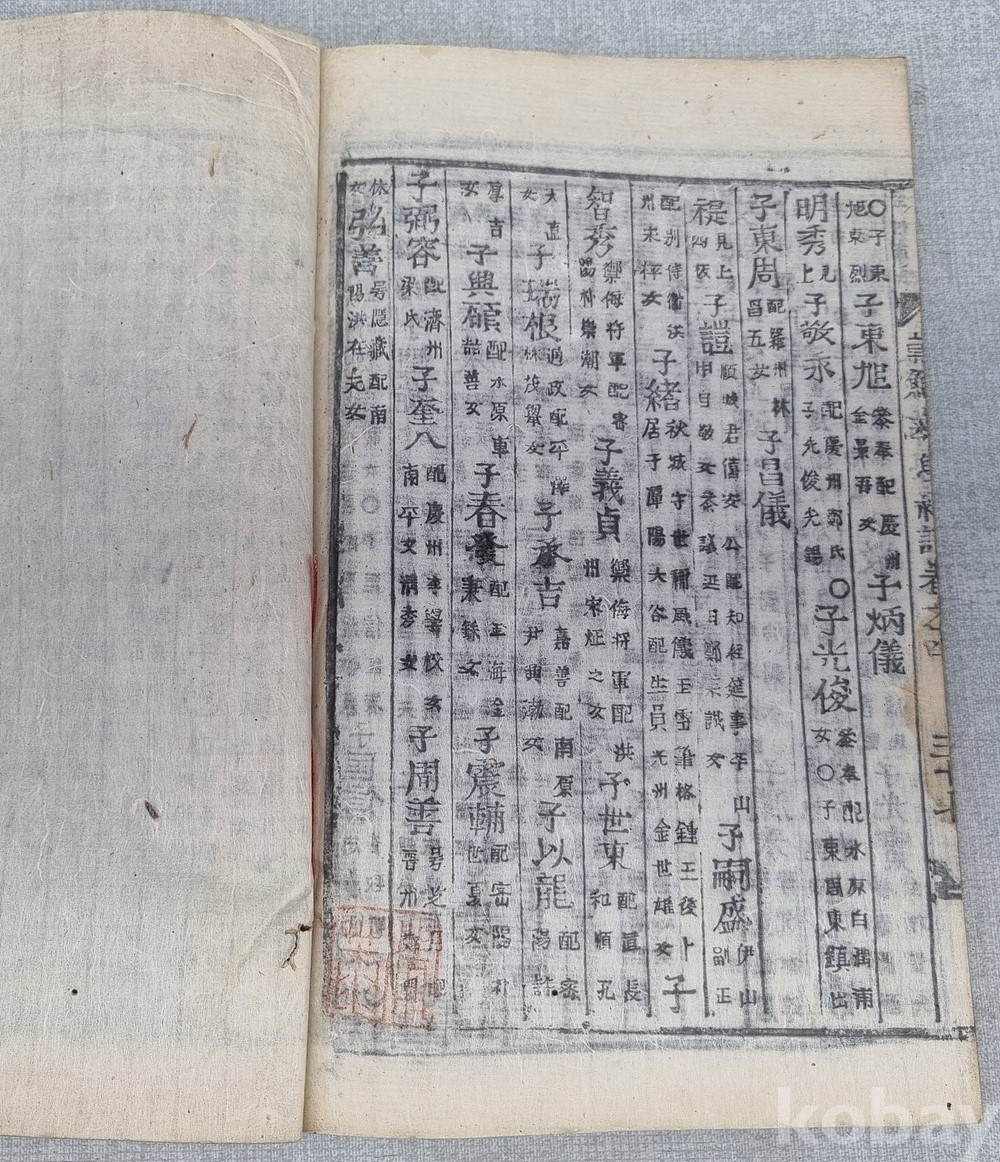 ○子東旭東烈 子東旭 參奉配慶州金景吾女 子炳儀
明秀 見上 子敬永 配慶州鄭氏子光俊光錫 ○子光俊 參奉配水原白潤甫女○子東周東鎮出
子東周 配羅州林昌五女 子昌儀
禔 見上四房 子誼 順城君僖安公配知經筵事平山申自敬女參議延日鄭宗誠女 子嗣盛 伊山副正
配別侍衛洪州宋梓女 子緒 秋城守世稱風儀玉雪筆格鍾王後卜居于潭陽大谷配生員光州金世雄女 子
智秀 禦侮將軍配密陽朴崇潮女 子義貞 禦侮將軍配洪州宋烶之女 子世東 配直長和順孔
大直女 子瑞根 通政配平 林茂舉女 子承吉 嘉善配南原尹興渤女 子以龍 配密陽許
厚吉女 子興顧 配水原車喆善女 子春發 配金海金兼鉉女 子震輔 配密陽朴世夏女
子弼容 配濟州梁氏 子奎八 配慶州李 南平文漪秀女 子周善 號芝 晋州
休女 弘善 號隱藏配南陽洪在夫女
卷之四
三十七
kobay